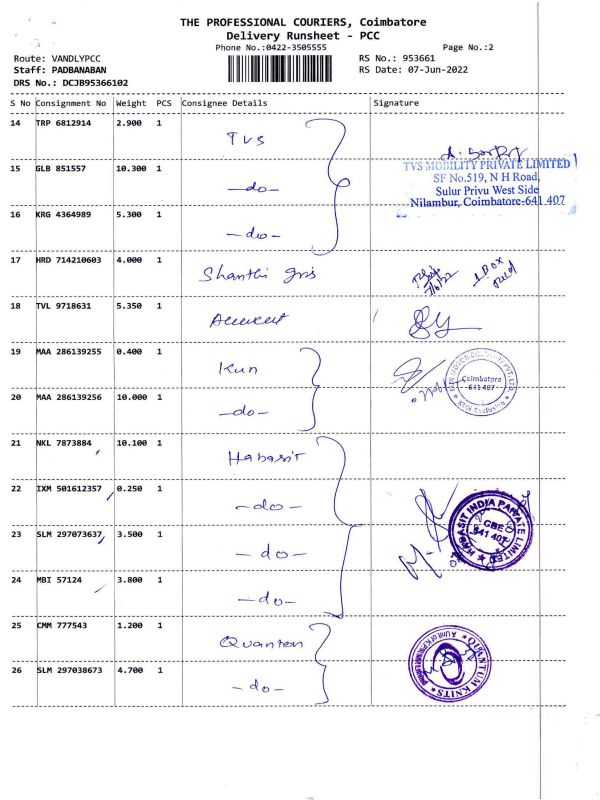 THE PROFESSIONAL COURIERS, Coimbatore
Delivery Runsheet - PCC
Phone No.:0422-3505555 Page No.:2
Route: VANDLYPCC RS No.: 953661
Staff: PADBANABAN RS Date: 07-Jun-2022
DRS No.: DCJB95366102
S No Consignment No Weight PCS Consignee Details Signature
14 TRP 6812914 2.900 1 TVS
TVS MOBILITY PRIVATE LIMITED
15 GLB 851557 10.300 1 -do-
SF No.519, N H Road,
Sulur Privu West Side
Nilambur, Coimbatore-641 407
16 KRG 4364989 5.300 1 -do-
17 HRD 714210603 4.000 1 Shanthi 7/6/22 1 BOX
18 TVL 9718631 5.350 1
19 MAA 286139255 0.400 1 Kun
Coimbatore
641 407
KUN Exclusive
20 MAA 286139256 10.000 1 -do-
21 NKL 7873884 10.100 1 Habasit
22 IXM 501612357 0.250 1 -do-
HABASIT INDIA PRIVATE LIMITED
CBE
641 407
23 SLM 297073637 3.500 1 -do-
24 MBI 57124 3.800 1 -do-
25 CMM 777543 1.200 1
QUANTUM KNITS
26 SLM 297038673 4.700 1 -do-